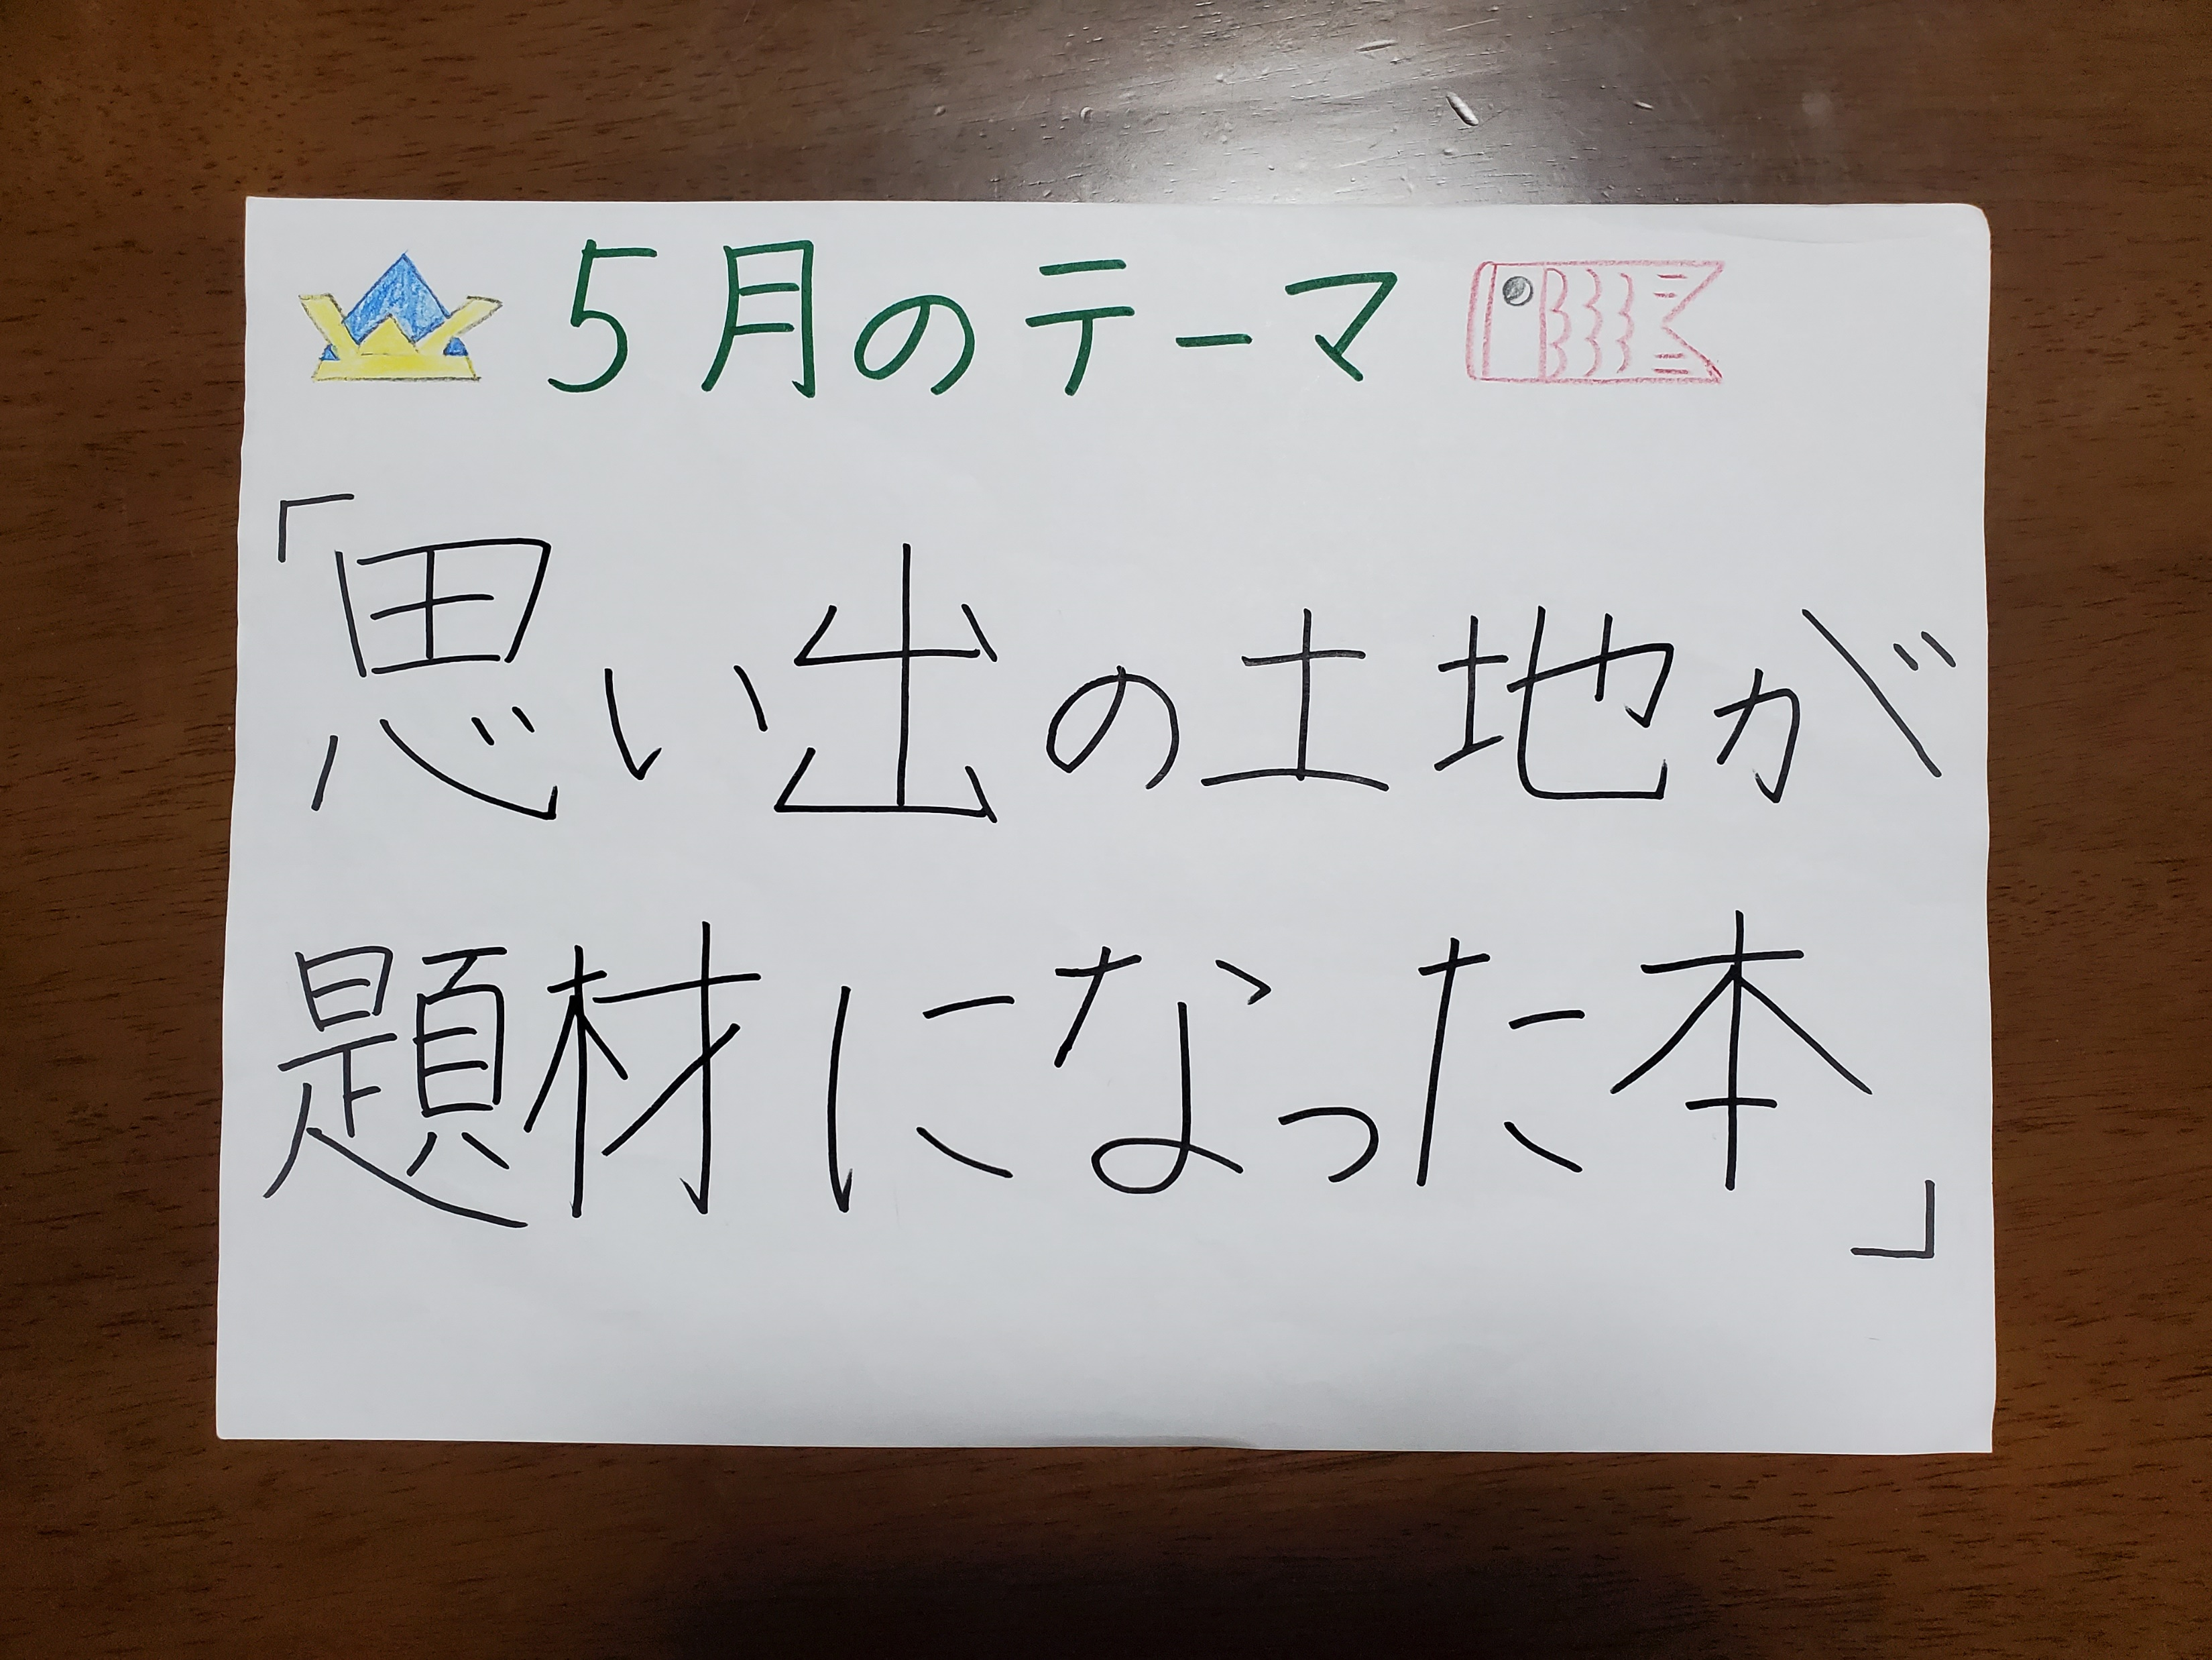 5月のテーマ
「思い出の土地が
題材になった本」